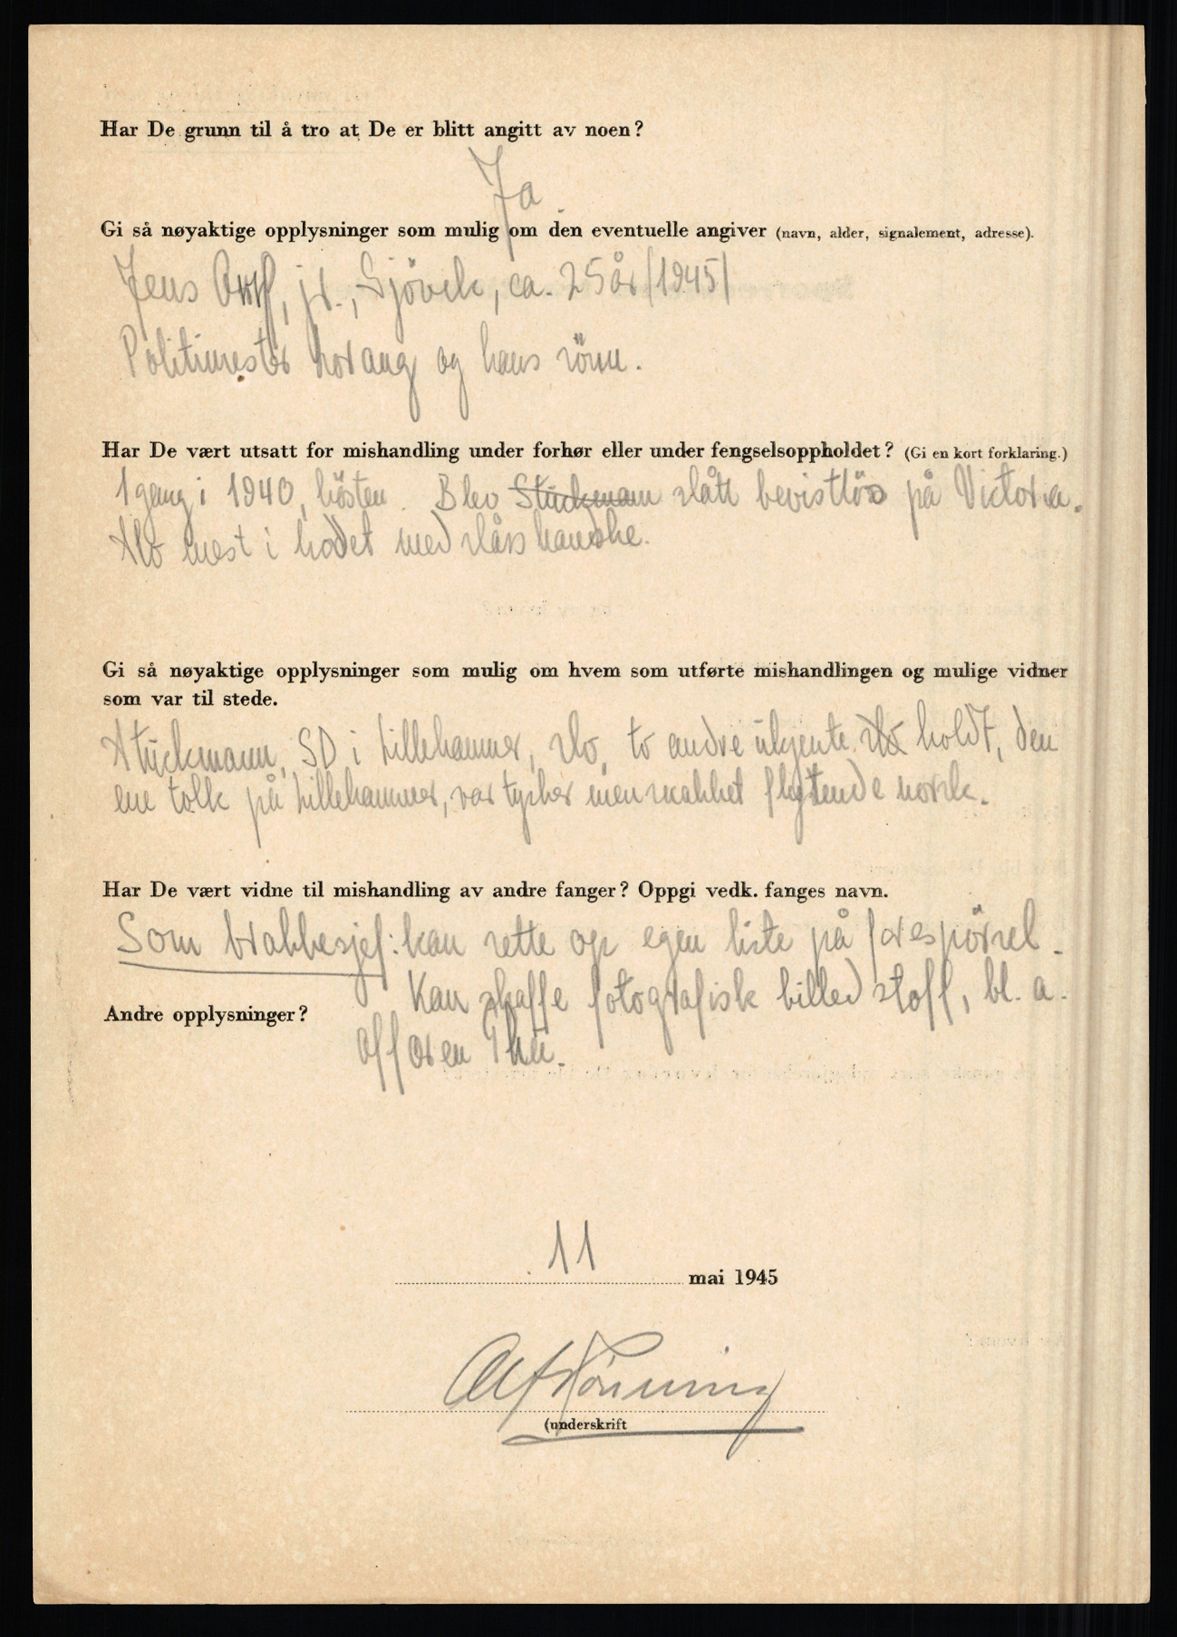 Har De grunn til å tro at De er blitt angitt av noen?
Ja
Gi så nøyaktige opplysninger som mulig om den eventuelle angiver (navn, alder, signalement, adresse).
Jens jr., Gjövik, ca. 25 år (1945)
Politimester og hans sönn.
Har De vært utsatt for mishandling under forhør eller under fengselsoppholdet? (Gi en kort forklaring.)
1 gang i 1940, hösten. Blev Stuckmann slått bevistlös på Victoria.
Slo mest i hodet med slåsshandske.
Gi så nøyaktige opplysninger som mulig om hvem som utførte mishandlingen og mulige vidner
som var til stede.
Stuckmann, SD i Lillehammer, slo, to andre ukjente slo holdt, den
ene tolk på Lillehammer, var tysker men snakket flytende norsk.
Har De vært vidne til mishandling av andre fanger? Oppgi vedk. fanges navn.
Som brakkesjef: kan sette op egen liste på forespörsel.
Andre opplysninger? Kan skaffe fotografisk billedstoff, bl. a.
affæren Thu.
11 mai 1945
Alf Rönning
(underskrift